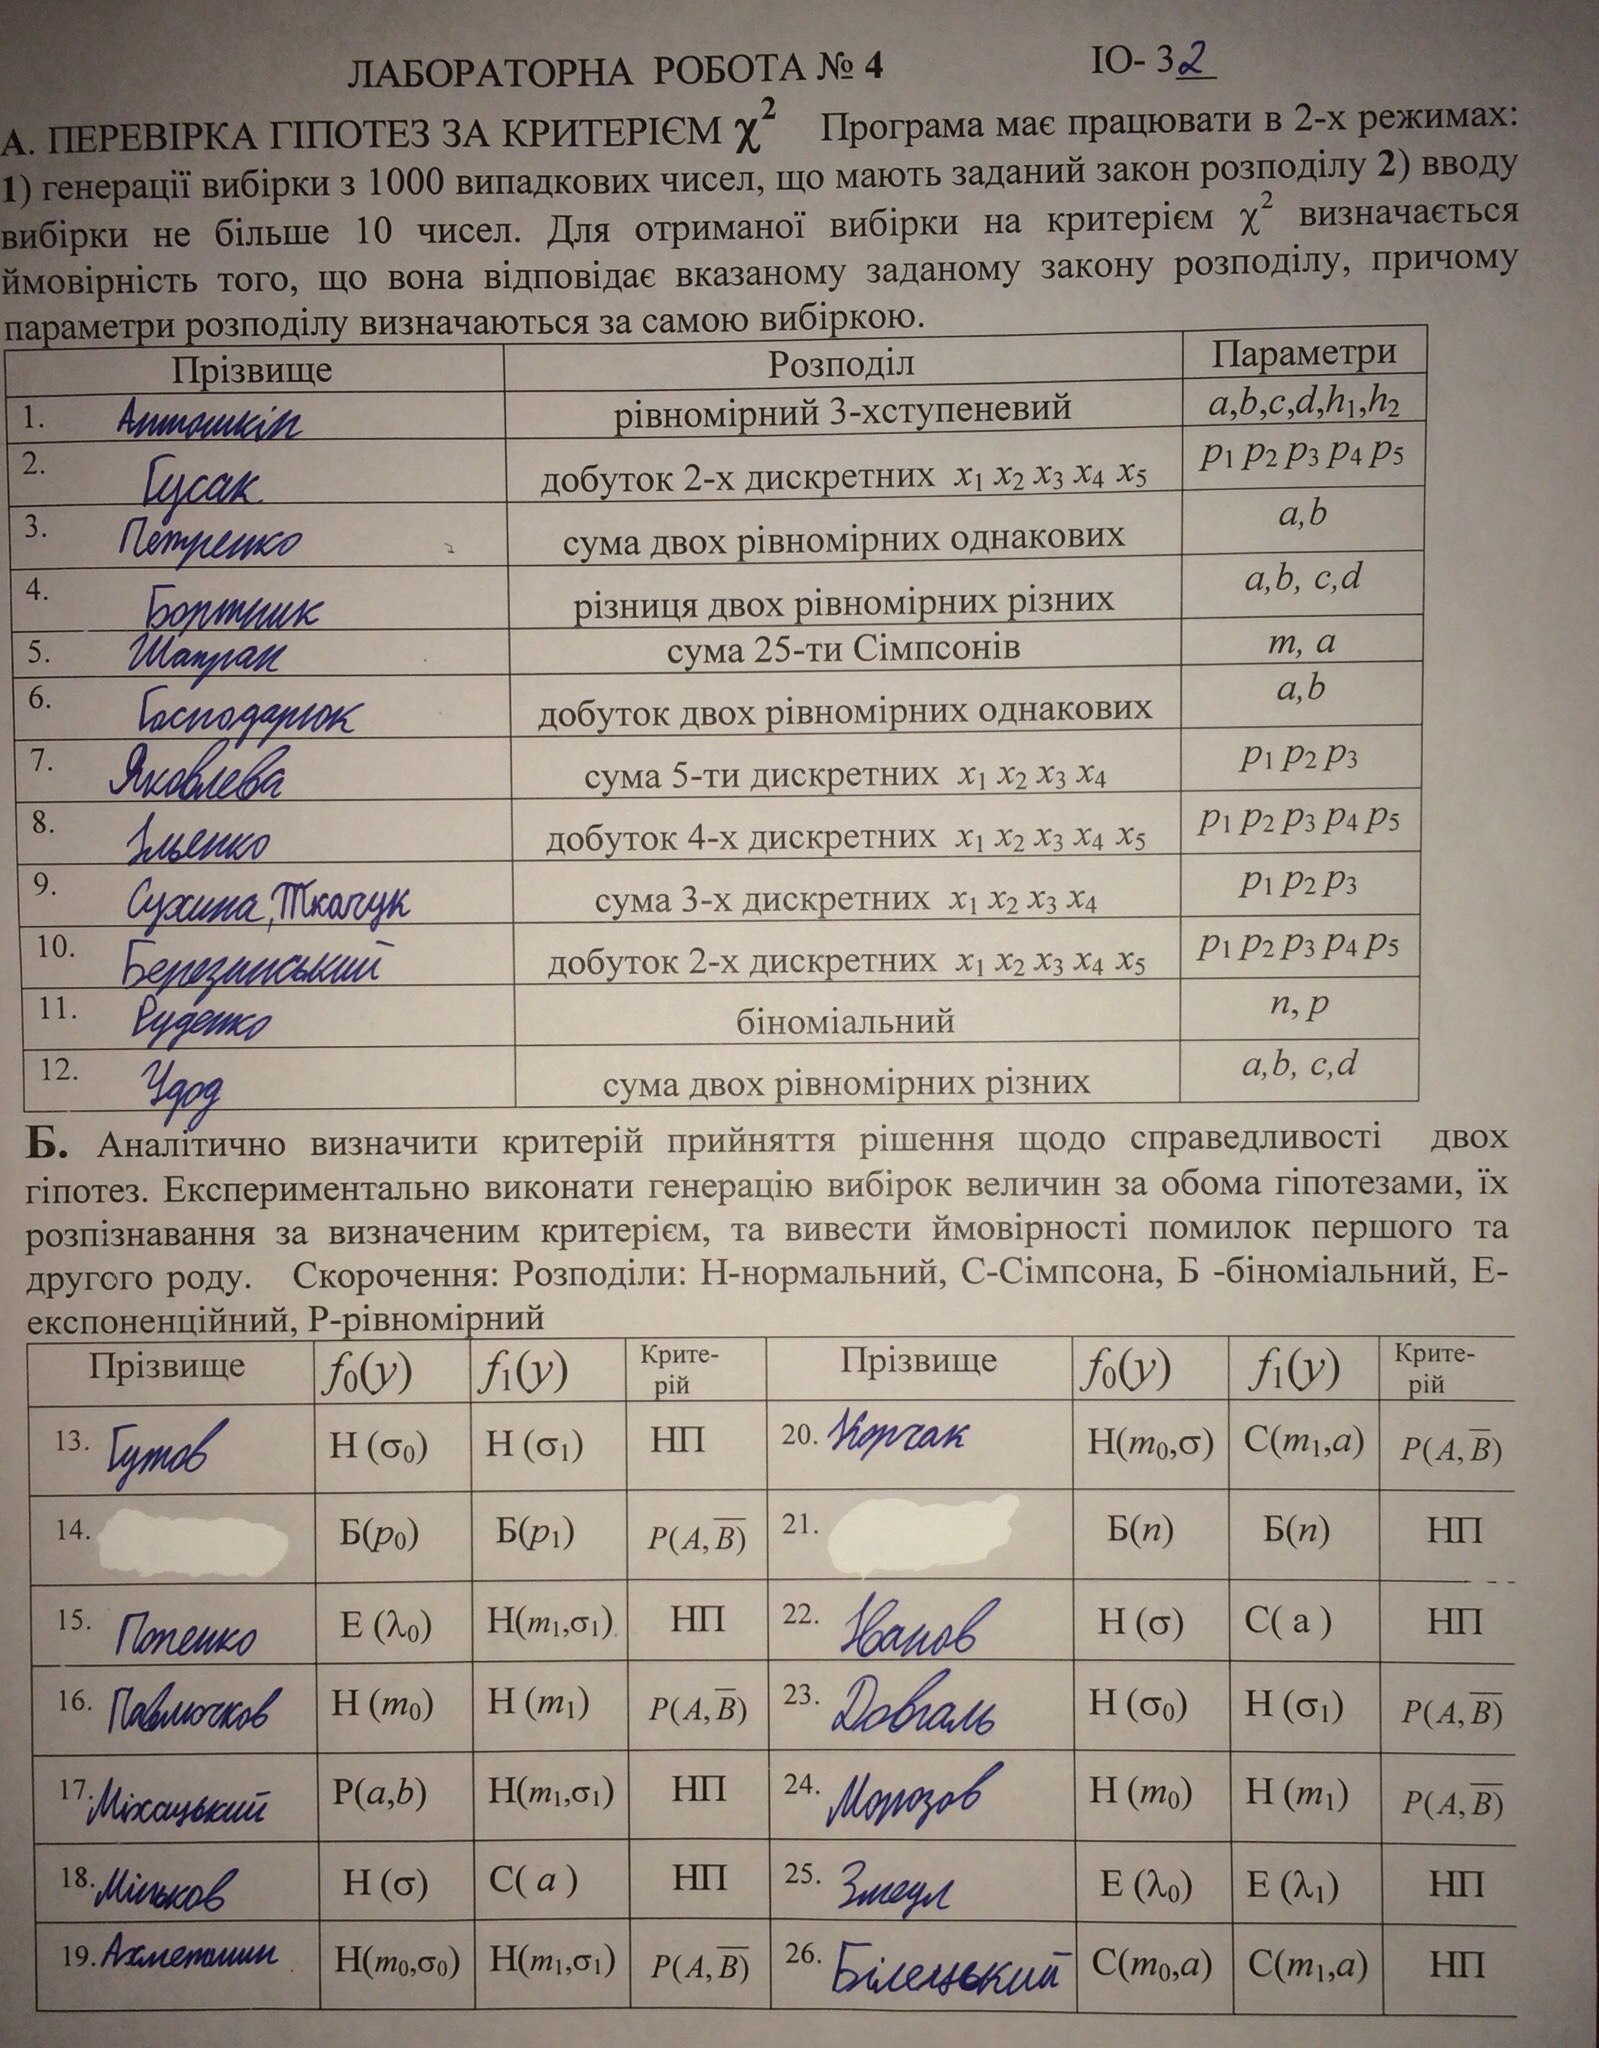 ЛАБОРАТОРНА РОБОТА № 4 ІО- 32
А. ПЕРЕВІРКА ГІПОТЕЗ ЗА КРИТЕРІЄМ χ² Програма має працювати в 2-х режимах:
1) генерації вибірки з 1000 випадкових чисел, що мають заданий закон розподілу 2) вводу
вибірки не більше 10 чисел. Для отриманої вибірки на критерієм χ² визначається
ймовірність того, що вона відповідає вказаному заданому закону розподілу, причому
параметри розподілу визначаються за самою вибіркою.
Прізвище Розподіл Параметри
1. Антошкін рівномірний 3-хступеневий a,b,c,d,h₁,h₂
2. Гусак добуток 2-х дискретних x₁ x₂ x₃ x₄ x₅ p₁ p₂ p₃ p₄ p₅
3. Петренко сума двох рівномірних однакових a,b
4. Бортник різниця двох рівномірних різних a,b, c,d
5. Шапран сума 25-ти Сімпсонів m, a
6. Господарюк добуток двох рівномірних однакових a,b
7. Яковлева сума 5-ти дискретних x₁ x₂ x₃ x₄ p₁ p₂ p₃
8. Ільєнко добуток 4-х дискретних x₁ x₂ x₃ x₄ x₅ p₁ p₂ p₃ p₄ p₅
9. Сухина, Ткачук сума 3-х дискретних x₁ x₂ x₃ x₄ p₁ p₂ p₃
10. Березинський добуток 2-х дискретних x₁ x₂ x₃ x₄ x₅ p₁ p₂ p₃ p₄ p₅
11. Руденко біноміальний n, p
12. Удод сума двох рівномірних різних a,b, c,d
Б. Аналітично визначити критерій прийняття рішення щодо справедливості двох
гіпотез. Експериментально виконати генерацію вибірок величин за обома гіпотезами, їх
розпізнавання за визначеним критерієм, та вивести ймовірності помилок першого та
другого роду. Скорочення: Розподіли: Н-нормальний, С-Сімпсона, Б -біноміальний, Е-
експоненційний, Р-рівномірний
Прізвище f₀(y) f₁(y) Крите- рій Прізвище f₀(y) f₁(y) Крите- рій
13. Гутов Н (σ₀) Н (σ₁) НП 20. Корчак Н(m₀,σ) С(m₁,a) P(A,B̅)
14. Б(p₀) Б(p₁) P(A,B̅) 21. Б(n) Б(n) НП
15. Попенко Е (λ₀) Н(m₁,σ₁) НП 22. Іванов Н (σ) С( a ) НП
16. Павлючков Н (m₀) Н (m₁) P(A,B̅) 23. Довгаль Н (σ₀) Н (σ₁) P(A,B̅)
17. Міхацький Р(a,b) Н(m₁,σ₁) НП 24. Морозов Н (m₀) Н (m₁) P(A,B̅)
18. Міньков Н (σ) С( a ) НП 25. Змеул Е (λ₀) Е (λ₁) НП
19. Ахметшин Н(m₀,σ₀) Н(m₁,σ₁) P(A,B̅) 26. Білецький С(m₀,a) С(m₁,a) НП